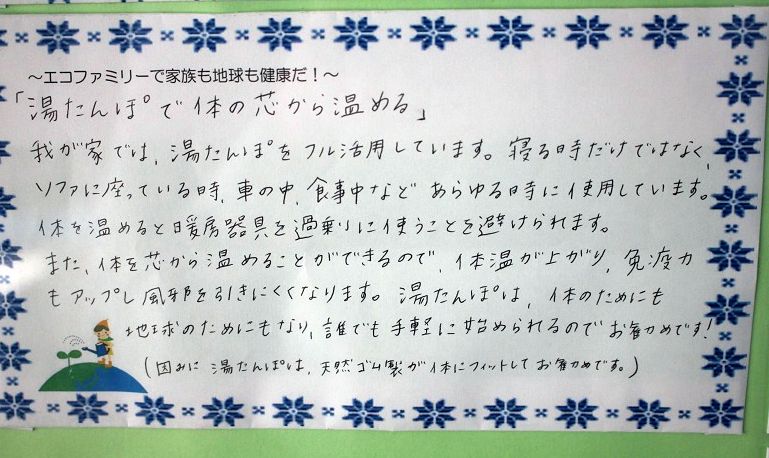 ～エコファミリーで家族も地球も健康だ！～
「湯たんぽで体の芯から温める」
我が家では、湯たんぽをフル活用しています。寝る時だけではなく、
ソファに座っている時、車の中、食事中など あらゆる時に使用しています。
体を温めると暖房器具を過剰に使うことを避けられます。
また、体を芯から温めることができるので、体温が上がり、免疫力
もアップし風邪を引きにくくなります。湯たんぽは、体のためにも
地球のためにもなり、誰でも手軽に始められるのでお勧めです！
(因みに 湯たんぽは、天然ゴム製が体にフィットしてお勧めです。)